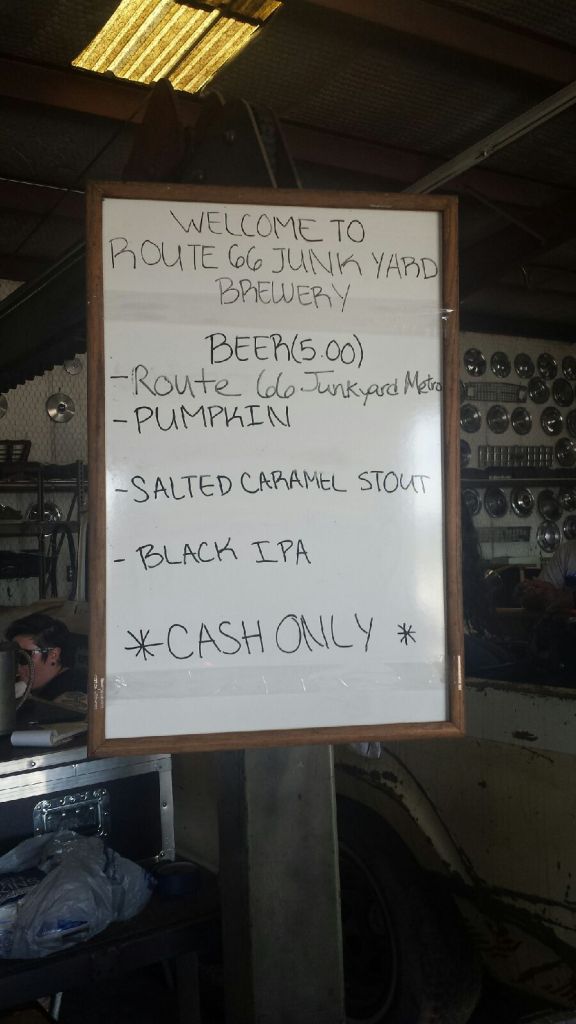 WELCOME TO
ROUTE 66 JUNK YARD
BREWERY
BEER(5.00)
-Route 66 Junkyard Metro
-PUMPKIN
-SALTED CARAMEL STOUT
- BLACK IPA
*CASH ONLY *